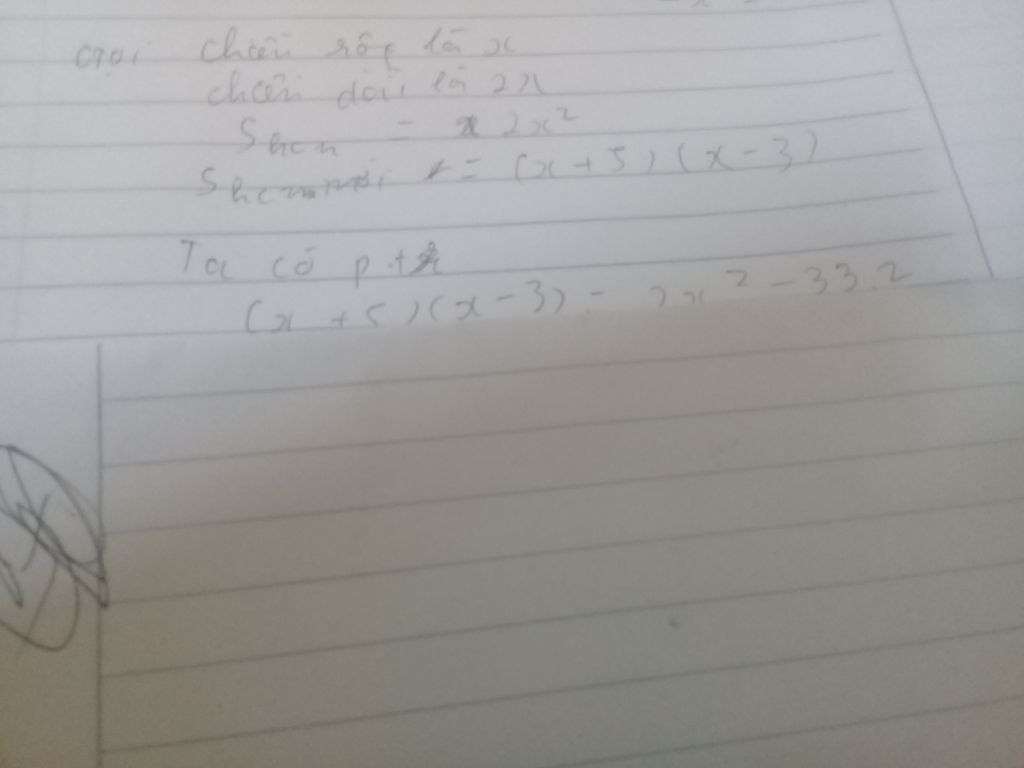 Gọi chiều rộng là x
chiều dài là 2x
S hcn = 2x²
S hcn mới = (x + 5) (x - 3)
Ta có p.t
(x + 5) (x - 3) = 2x² - 33.2